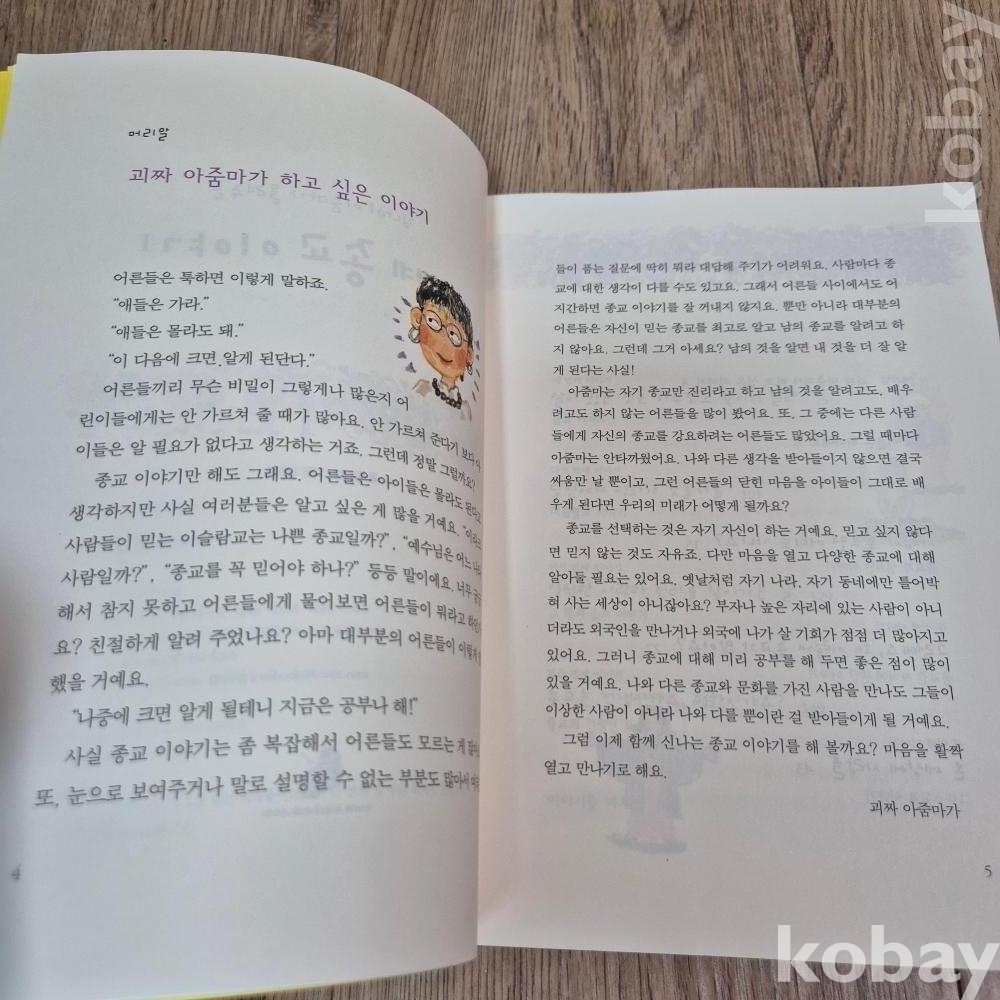 머리말
괴짜 아줌마가 하고 싶은 이야기
어른들은 툭하면 이렇게 말하죠.
“애들은 가라.”
“애들은 몰라도 돼.”
“이 다음에 크면 알게 된단다.”
어른들끼리 무슨 비밀이 그렇게나 많은지 어
린이들에게는 안 가르쳐 줄 때가 많아요. 안 가르쳐 준다기 보다
이들은 알 필요가 없다고 생각하는 거죠. 그런데 정말 그럴까요?
종교 이야기만 해도 그래요. 어른들은 아이들은 몰라도 된다고
생각하지만 사실 여러분들은 알고 싶은 게 많을 거예요.
사람들이 믿는 이슬람교는 나쁜 종교일까?”, “예수님은 어느
사람일까?”, “종교를 꼭 믿어야 하나?” 등등 말이에요. 너무
해서 참지 못하고 어른들에게 물어보면 어른들이 뭐라고
요? 친절하게 알려 주었나요? 아마 대부분의 어른들이 이렇게
했을 거예요.
“나중에 크면 알게 될테니 지금은 공부나 해!”
사실 종교 이야기는 좀 복잡해서 어른들도 모르는 게
또, 눈으로 보여주거나 말로 설명할 수 없는 부분도 많아서
4
들이 품는 질문에 딱히 뭐라 대답해 주기가 어려워요. 사람마다 종
교에 대한 생각이 다를 수도 있고요. 그래서 어른들 사이에서도 어
지간하면 종교 이야기를 잘 꺼내지 않지요. 뿐만 아니라 대부분의
어른들은 자신이 믿는 종교를 최고로 알고 남의 종교를 알려고 하
지 않아요. 그런데 그거 아세요? 남의 것을 알면 내 것을 더 잘 알
게 된다는 사실!
아줌마는 자기 종교만 진리라고 하고 남의 것을 알려고도, 배우
려고도 하지 않는 어른들을 많이 봤어요. 또, 그 중에는 다른 사람
들에게 자신의 종교를 강요하려는 어른들도 많았어요. 그럴 때마다
아줌마는 안타까웠어요. 나와 다른 생각을 받아들이지 않으면 결국
싸움만 날 뿐이고, 그런 어른들의 닫힌 마음을 아이들이 그대로 배
우게 된다면 우리의 미래가 어떻게 될까요?
종교를 선택하는 것은 자기 자신이 하는 거예요. 믿고 싶지 않다
면 믿지 않는 것도 자유죠. 다만 마음을 열고 다양한 종교에 대해
알아둘 필요는 있어요. 옛날처럼 자기 나라, 자기 동네에만 틀어박
혀 사는 세상이 아니잖아요? 부자나 높은 자리에 있는 사람이 아니
더라도 외국인을 만나거나 외국에 나가 살 기회가 점점 더 많아지고
있어요. 그러니 종교에 대해 미리 공부를 해 두면 좋은 점이 많이
있을 거예요. 나와 다른 종교와 문화를 가진 사람을 만나도 그들이
이상한 사람이 아니라 나와 다를 뿐이란 걸 받아들이게 될 거예요.
그럼 이제 함께 신나는 종교 이야기를 해 볼까요? 마음을 활짝
열고 만나기로 해요.
괴짜 아줌마가
5
kobay
kobay